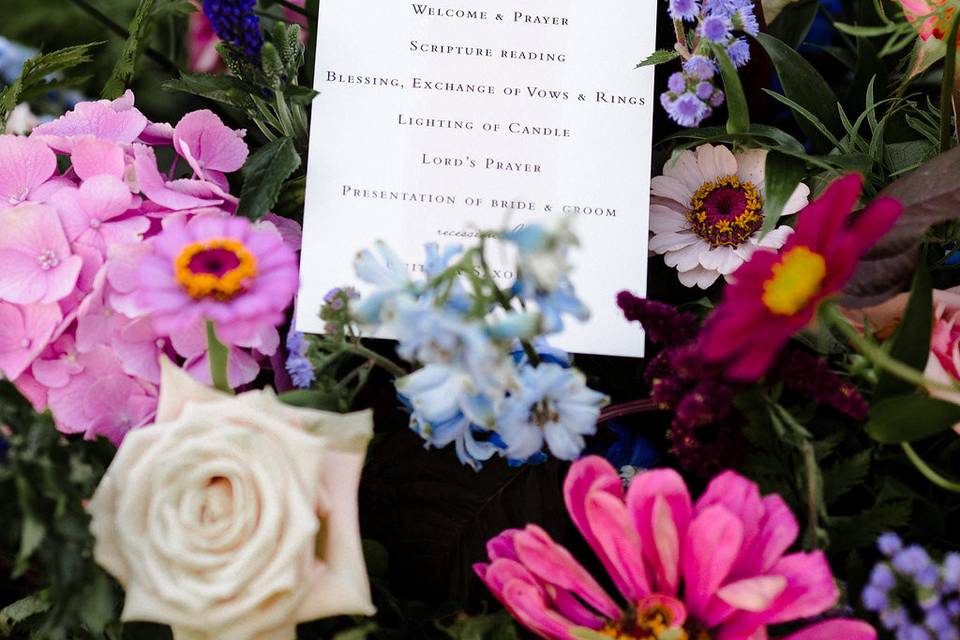 Welcome & Prayer
Scripture reading
Blessing, Exchange of Vows & Rings
Lighting of Candle
Lord's Prayer
Presentation of bride & groom
recessional
& Saxo